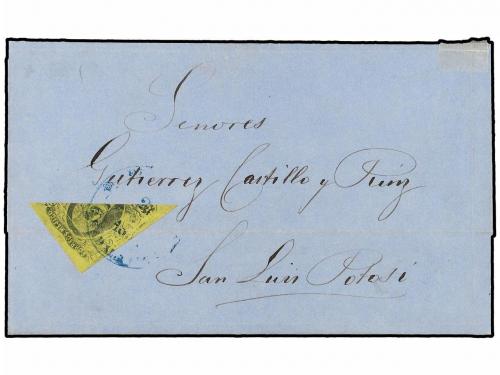 Señores
Gutierrez Castillo y Ruiz
San Luis Potosi